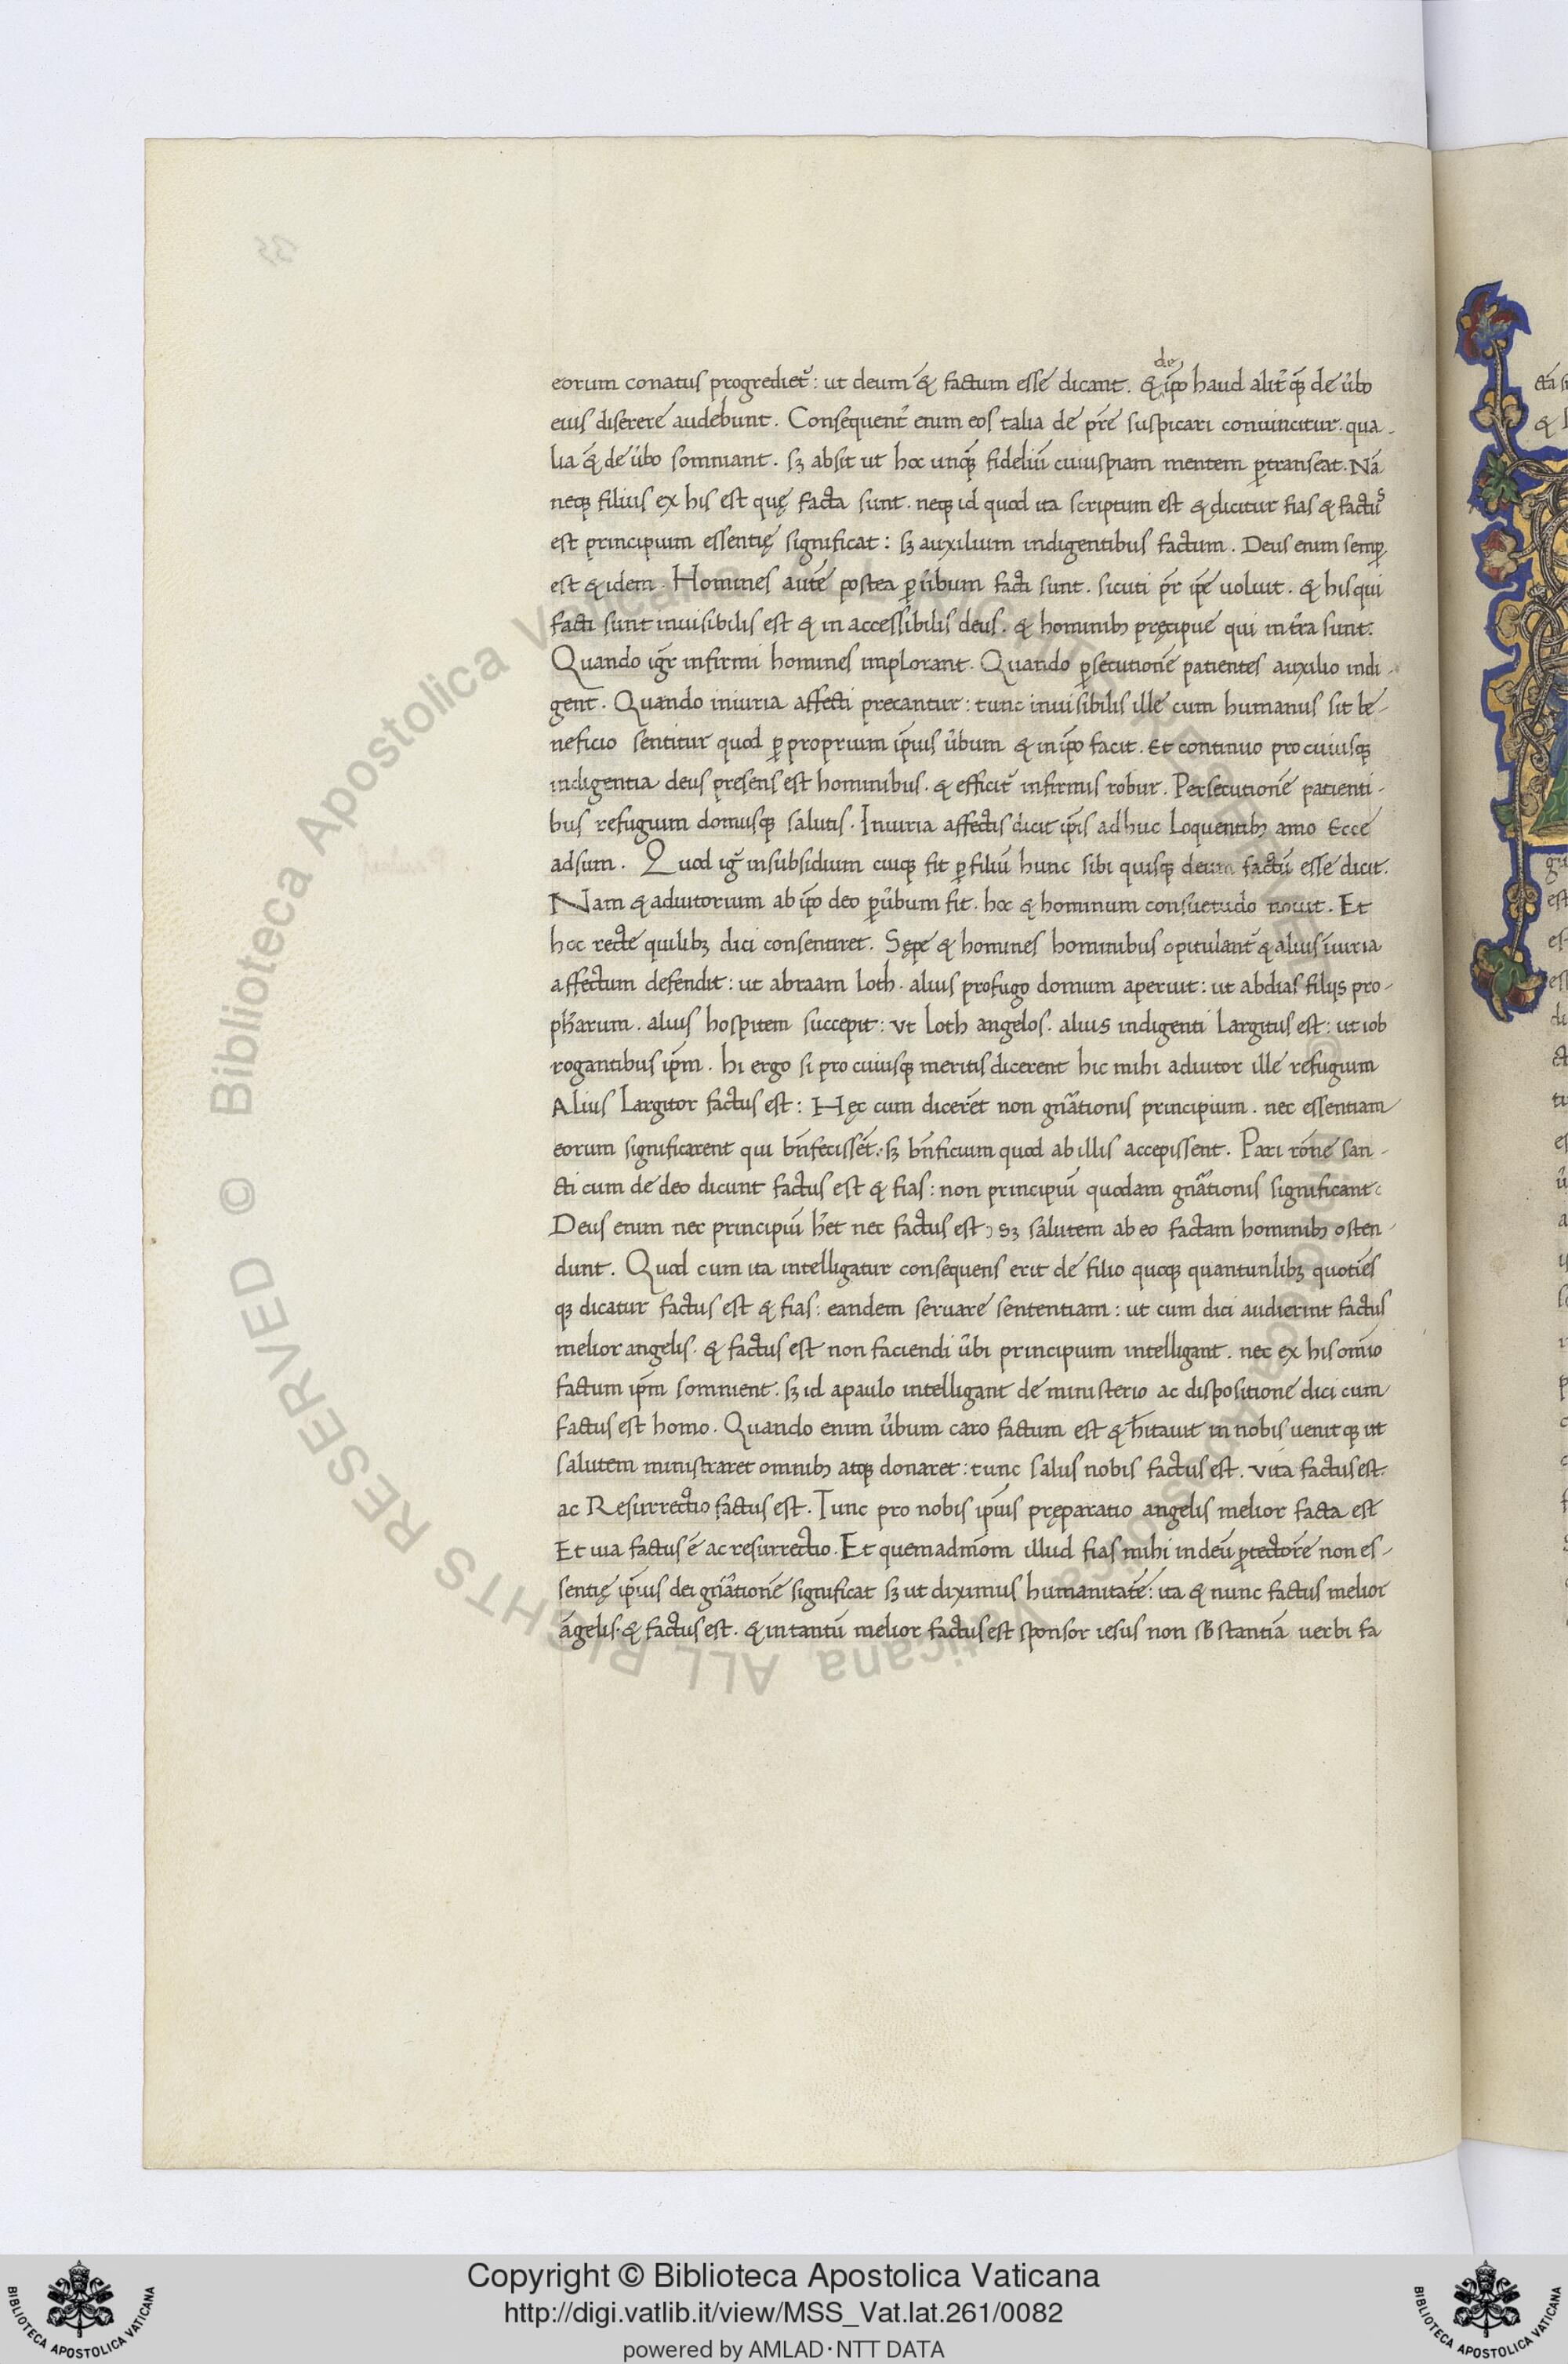 eorum conatus progrediet᷑: ut deum & factum esse dicant. & de ip̄o haud alit᷑ q̄ꝫ de u̓bo
eius diserere audebunt. Consequent᷑ enim eos talia de pr̄e suspicari conuincitur. qua-
lia & de u̓bo somniant. sꝫ absit ut hoc unq̄ꝫ fideliū cuiuspiam mentem ꝑtranseat. Nā
neqꝫ filius ex his est quę facta sunt. neqꝫ id quod ita scriptum est & dicitur fias & factus
est principium essentię significat: sꝫ auxilium indigentibus factum. Deus enim semꝑ
est & idem. Homines autē postea ꝑ u̓bum facti sunt. sicuti pr̄ ip̄e uoluit. & his qui
facti sunt inuisibilis est & in accessibilis deus. & hominibꝫ pręcipue qui in tr̄a sunt.
Quando igr̄ infirmi homines implorant. Quando ꝑsecutionē patientes auxilio indi-
gent. Quando iniuria affecti precantur: tunc inuisibilis ille cum humanus sit be-
neficio sentitur quod ꝑ proprium ip̄ius u̓bum & in ip̄o facit. Et continuo pro cuiusqꝫ
indigentia deus pręsens est hominibus. & efficit᷑ infirmis robur. Persecutionē patienti-
bus refugium domusqꝫ salutis. Iniuria affectis dicit ip̄is adhuc Loquentibꝫ amo Ecce
adsum. Quod igr̄ in subsidium cuiqꝫ fit ꝑ filiū hunc sibi quisqꝫ deum factū esse dicit.
Nam & adiutorium ab ip̄o deo ꝑ u̓bum fit. hoc & hominum consuetudo nouit. Et
hoc recte quilibꝫ dici consentiret. Sępe & homines hominibus opitulant᷑ & alius iniuria
affectum defendit: ut abraam loth. alius profugo domum aperuit: ut abdias filijs pro-
ph̄arum. alius hospitem succepit: ut Loth angelos. alius indigenti Largitus est: ut iob
rogantibus ip̄m. hi ergo si pro cuiusqꝫ meritis dicerent hic mihi adiutor ille refugium
Alius Largitor factus est: Hęc cum dicerēt non gn̄ationis principium. nec essentiam
eorum significarent qui bn̄fecissēt: sꝫ bn̄ficium quod ab illis accepissent. Pari rōne san-
cti cum de deo dicunt factus est & fias: non principiū quodam gn̄ationis significant
Deus enim nec principiū h̄et nec factus est, sꝫ salutem ab eo factam hominibꝫ osten-
dunt. Quod cum ita intelligatur consequens erit de filio quoqꝫ quantunlibꝫ quoties
qꝫ dicatur factus est & fias: eandem seruare sententiam: ut cum dici audierint factus
melior angelis. & factus est non faciendi u̓bi principium intelligant. nec ex his om̄io
factum ip̄m somnient. sꝫ id apaulo intelligant de ministerio ac dispositione dici cum
factus est homo. Quando enim u̓bum caro factum est & h̄itauit in nobis uenitqꝫ ut
salutem ministraret omnibꝫ atqꝫ donaret: tunc salus nobis factus est. vita factus est
ac Resurrectio factus est. Tunc pro nobis ip̄ius pręparatio angelis melior facta est
Et uia factus ē ac resurrectio. Et quemadmōm illud fias mihi in deū ꝓtectorē non es-
sentię ip̄ius dei gn̄ationē significat sꝫ ut diximus humanitatē: ita & nunc factus melior
āgelis. & factus est. & in tantū melior factus est sponsor iesus non sb̄stantiā uerbi fa
© Biblioteca Apostolica Vaticana ALL RIGHTS RESERVED
Copyright © Biblioteca Apostolica Vaticana
http://digi.vatlib.it/view/MSS_Vat.lat.261/0082
powered by AMLAD·NTT DATA
BIBLIOTECA APOSTOLICA VATICANA
BIBLIOTECA APOSTOLICA VATICANA